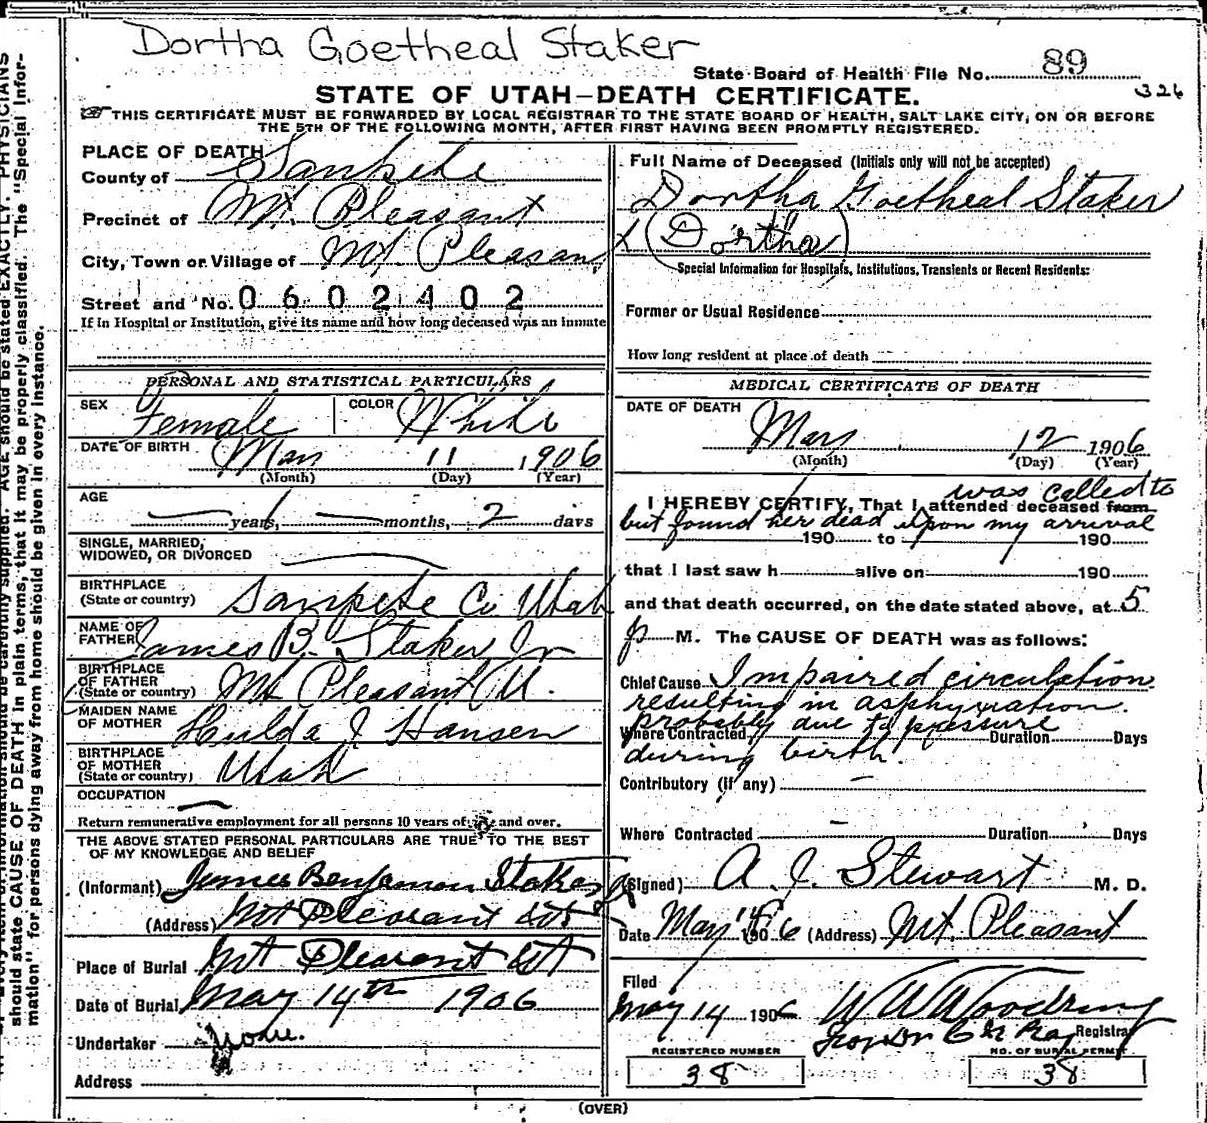 Dortha Goetheal Staker
State Board of Health File No. 89
326
STATE OF UTAH—DEATH CERTIFICATE.
THIS CERTIFICATE MUST BE FORWARDED BY LOCAL REGISTRAR TO THE STATE BOARD OF HEALTH, SALT LAKE CITY, ON OR BEFORE
THE 5TH OF THE FOLLOWING MONTH, AFTER FIRST HAVING BEEN PROMPTLY REGISTERED.
PLACE OF DEATH
County of Sanpete
Precinct of Mt. Pleasant
City, Town or Village of Mt. Pleasant
Street and No. 0602402
If in Hospital or Institution, give its name and how long deceased was an inmate
PERSONAL AND STATISTICAL PARTICULARS
SEX Female COLOR White
DATE OF BIRTH May 11 1906
(Month) (Day) (Year)
AGE
— years, — months, 2 days
SINGLE, MARRIED,
WIDOWED, OR DIVORCED
BIRTHPLACE
(State or country) Sanpete Co Utah
NAME OF
FATHER James B. Staker Jr
BIRTHPLACE
OF FATHER
(State or country) Mt Pleasant U.
MAIDEN NAME
OF MOTHER Hulda J Hansen
BIRTHPLACE
OF MOTHER
(State or country) Utah
OCCUPATION —
Return remunerative employment for all persons 10 years of age and over.
THE ABOVE STATED PERSONAL PARTICULARS ARE TRUE TO THE BEST
OF MY KNOWLEDGE AND BELIEF
(Informant) James Benjamin Staker Jr
(Address) Mt Pleasant Ut
Place of Burial Mt Pleasant Ut
Date of Burial May 14th 1906
Undertaker None.
Address
Full Name of Deceased (Initials only will not be accepted)
Dortha Goetheal Staker
x (Dortha)
Special Information for Hospitals, Institutions, Transients or Recent Residents:
Former or Usual Residence
How long resident at place of death
MEDICAL CERTIFICATE OF DEATH
DATE OF DEATH
May 12 1906
(Month) (Day) (Year)
was called to
I HEREBY CERTIFY, That I attended deceased from
but found her dead upon my arrival
190 to 190
that I last saw h alive on 190
and that death occurred, on the date stated above, at 5
p M. The CAUSE OF DEATH was as follows:
Chief Cause Impaired circulation
resulting in asphyxiation.
probably due to pressure
Where Contracted Duration Days
during birth.
Contributory (if any) —
Where Contracted — Duration Days
(Signed) A. J. Stewart M. D.
Date May 14 1906 (Address) Mt. Pleasant
Filed
May 14 1906 W W Woodring
Registrar
REGISTERED NUMBER NO. OF BURIAL PERMIT
38 38
(OVER)
should be carefully supplied. AGE should be stated EXACTLY. PHYSICIANS
should state CAUSE OF DEATH in plain terms, that it may be properly classified. The "Special Infor-
mation" for persons dying away from home should be given in every instance.